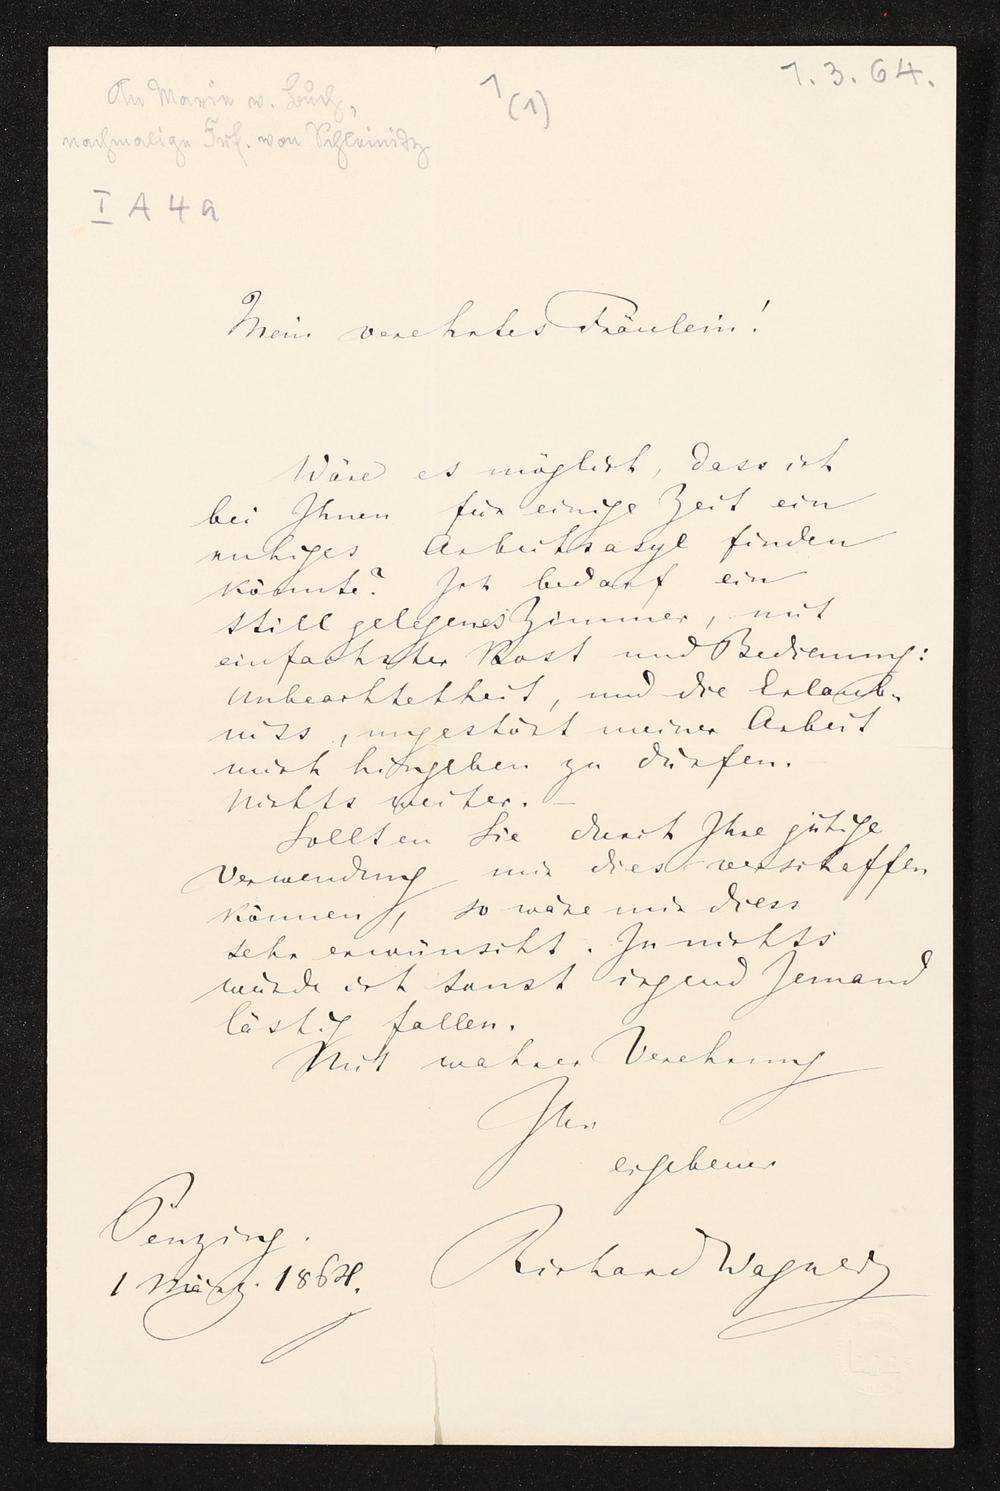 An Marie v. Buch,
nachmalige Frf. von Schleinitz
1
(1)
1.3.64.
I A 4 a
Mein verehrtes Fräulein!
Wäre es möglich, dass ich
bei Ihnen für einige Zeit ein
ruhiges Arbeitsasyl finden
könnte? Ich bedarf ein
still gelegenes Zimmer, mit
einfachster Kost und Bedienung:
Unbeachtetheit, und die Erlaub-
niss, ungestört meiner Arbeit
mich hingeben zu dürfen.
Nichts weiter. –
Sollten Sie durch Ihre gütige
Verwendung mir dies verschaffen
können, so wäre mir diess
sehr erwünscht. In nichts
würde ich sonst irgend Jemand
lästig fallen.
Mit wahrer Verehrung
Ihr
ergebener
Richard Wagner
Penzing.
1 März. 1864.